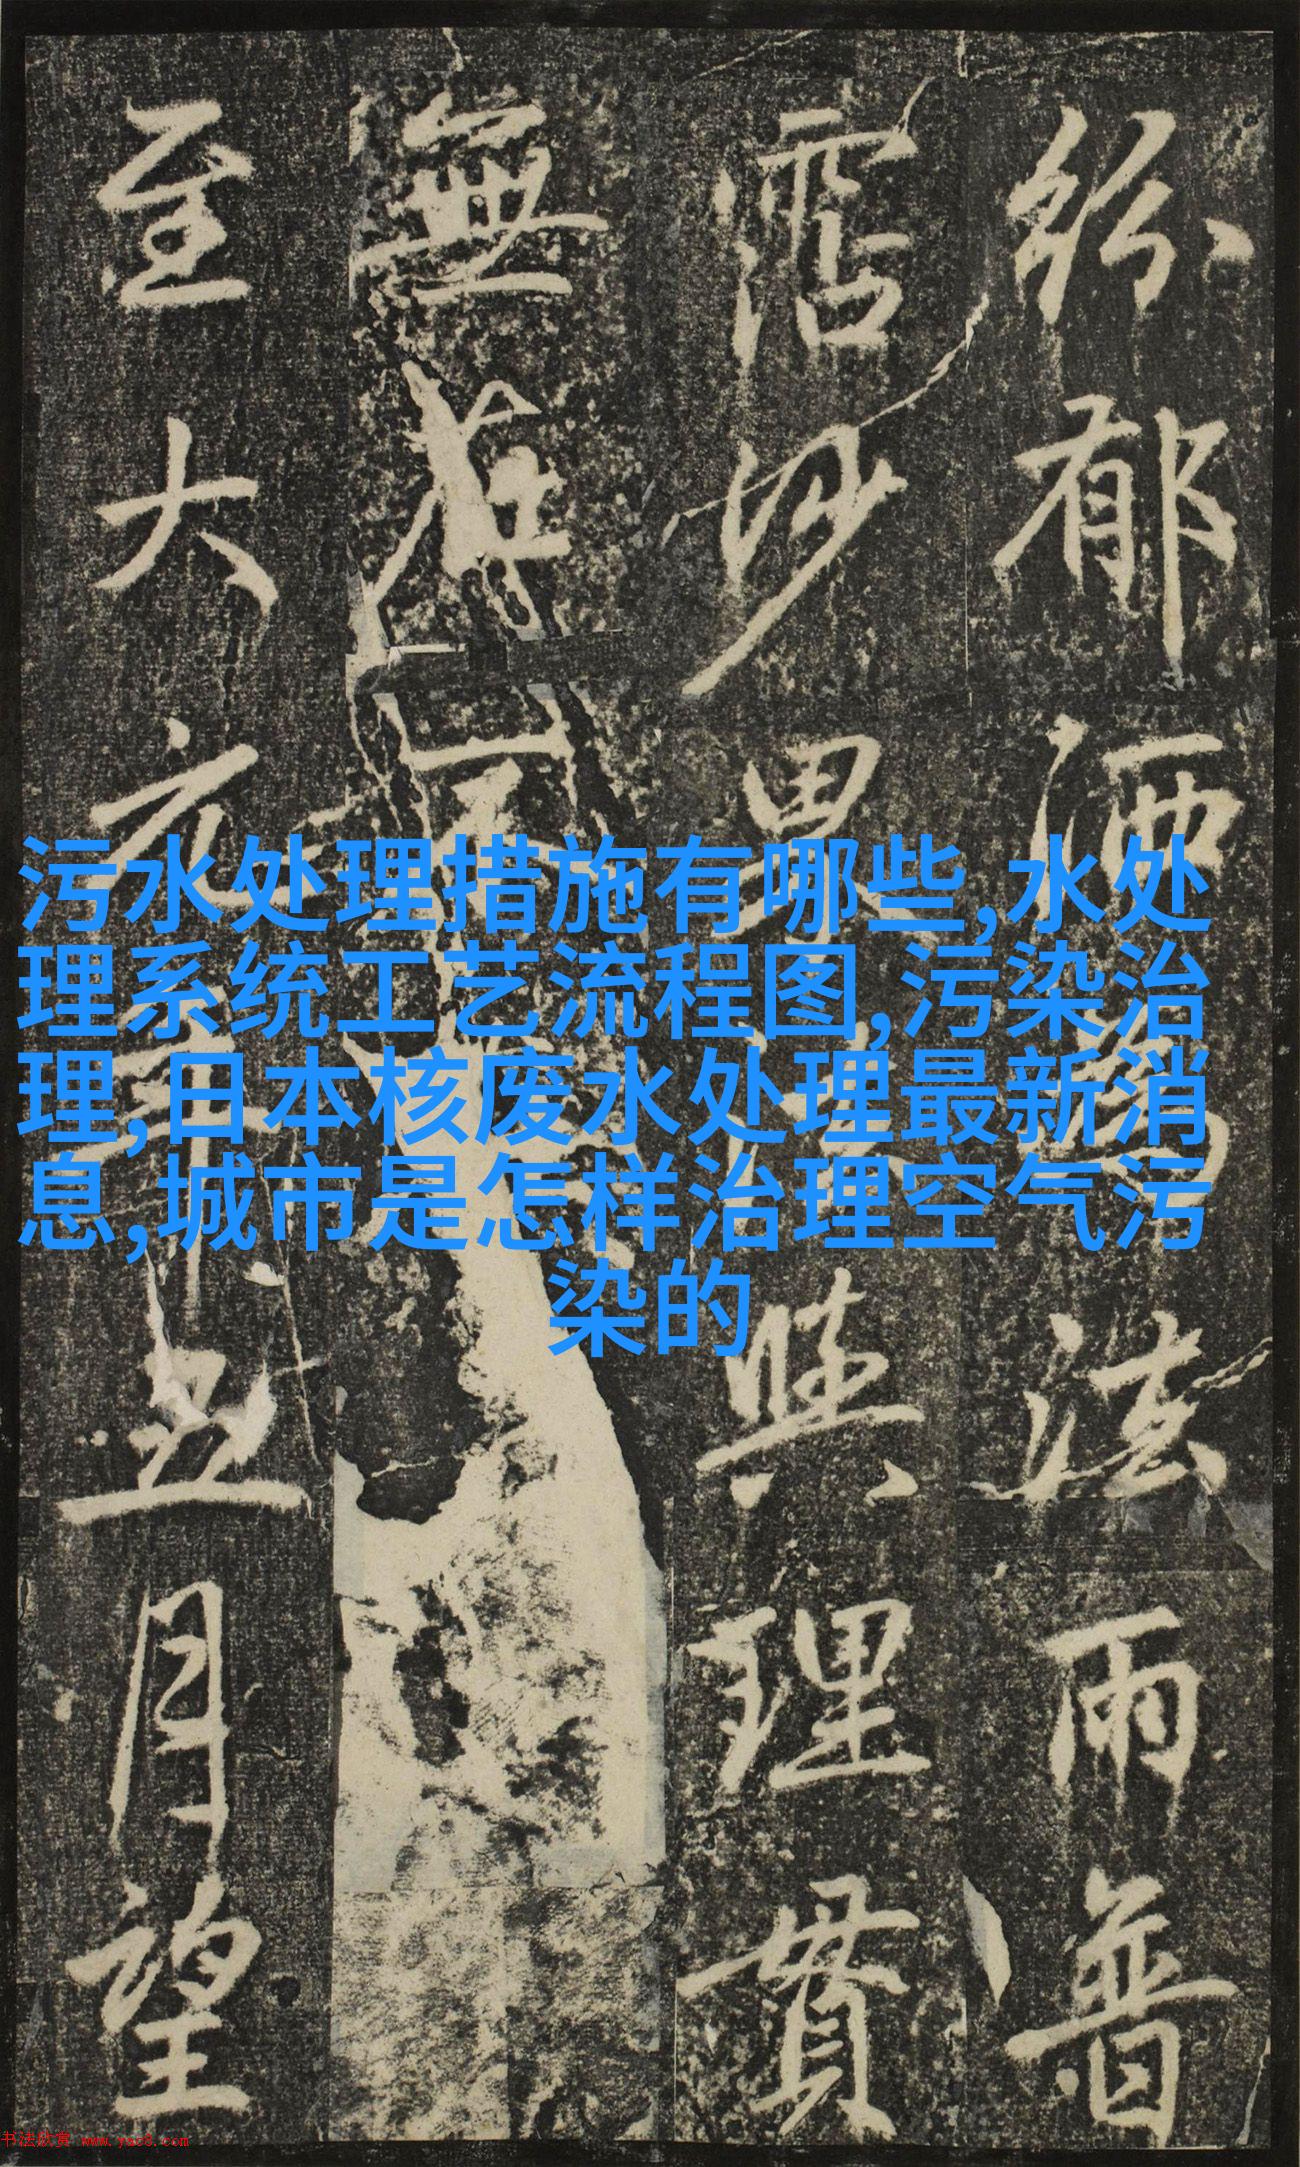 紛郁洒法雨普
霑沙界與理貫
無在
至大元年五月望
污水处理措施有哪些,水处
理系统工艺流程图,污染治
理,日本核废水处理最新消
息,城市是怎样治理空气污
染的
书法欣赏 www.yac8.com